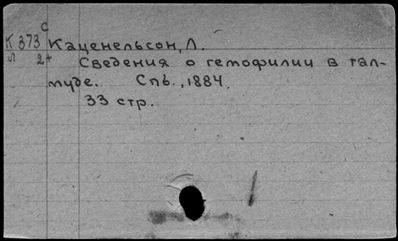 С
К 373 Каценельсон, Л.
Л 24 Сведения о гемофилии в тал-
муде. Спб., 1884.
33 стр.